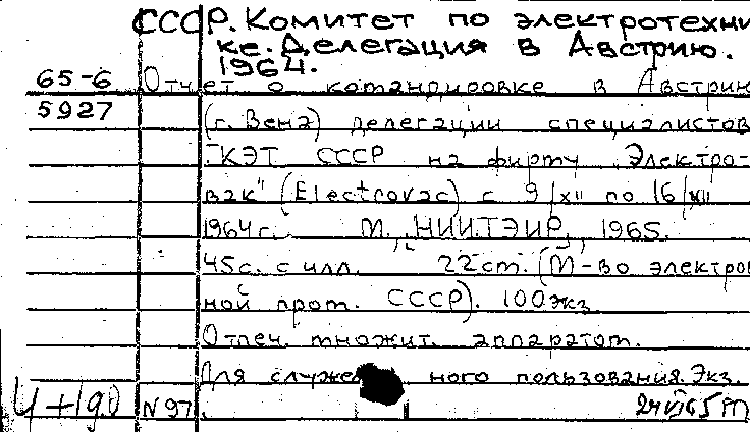 СССР. Комитет по электротехни
ке. Делегация в Австрию.
1964.
65-6 Отчет о командировке в Австрию
5927 (г. Вена) делегации специалистов
"КЭТ СССР на фирму "Электро-
вак" (Electrovac) с 9/XII по 16/XII
1964г. М., "НИИТЭИР", 1965.
45с. с илл. 22см. (М-во электрон
ной пром. СССР). 100экз.
Отпеч. множит. аппаратом.
Для служебного пользования. Экз.
N 97. 24 VI 65